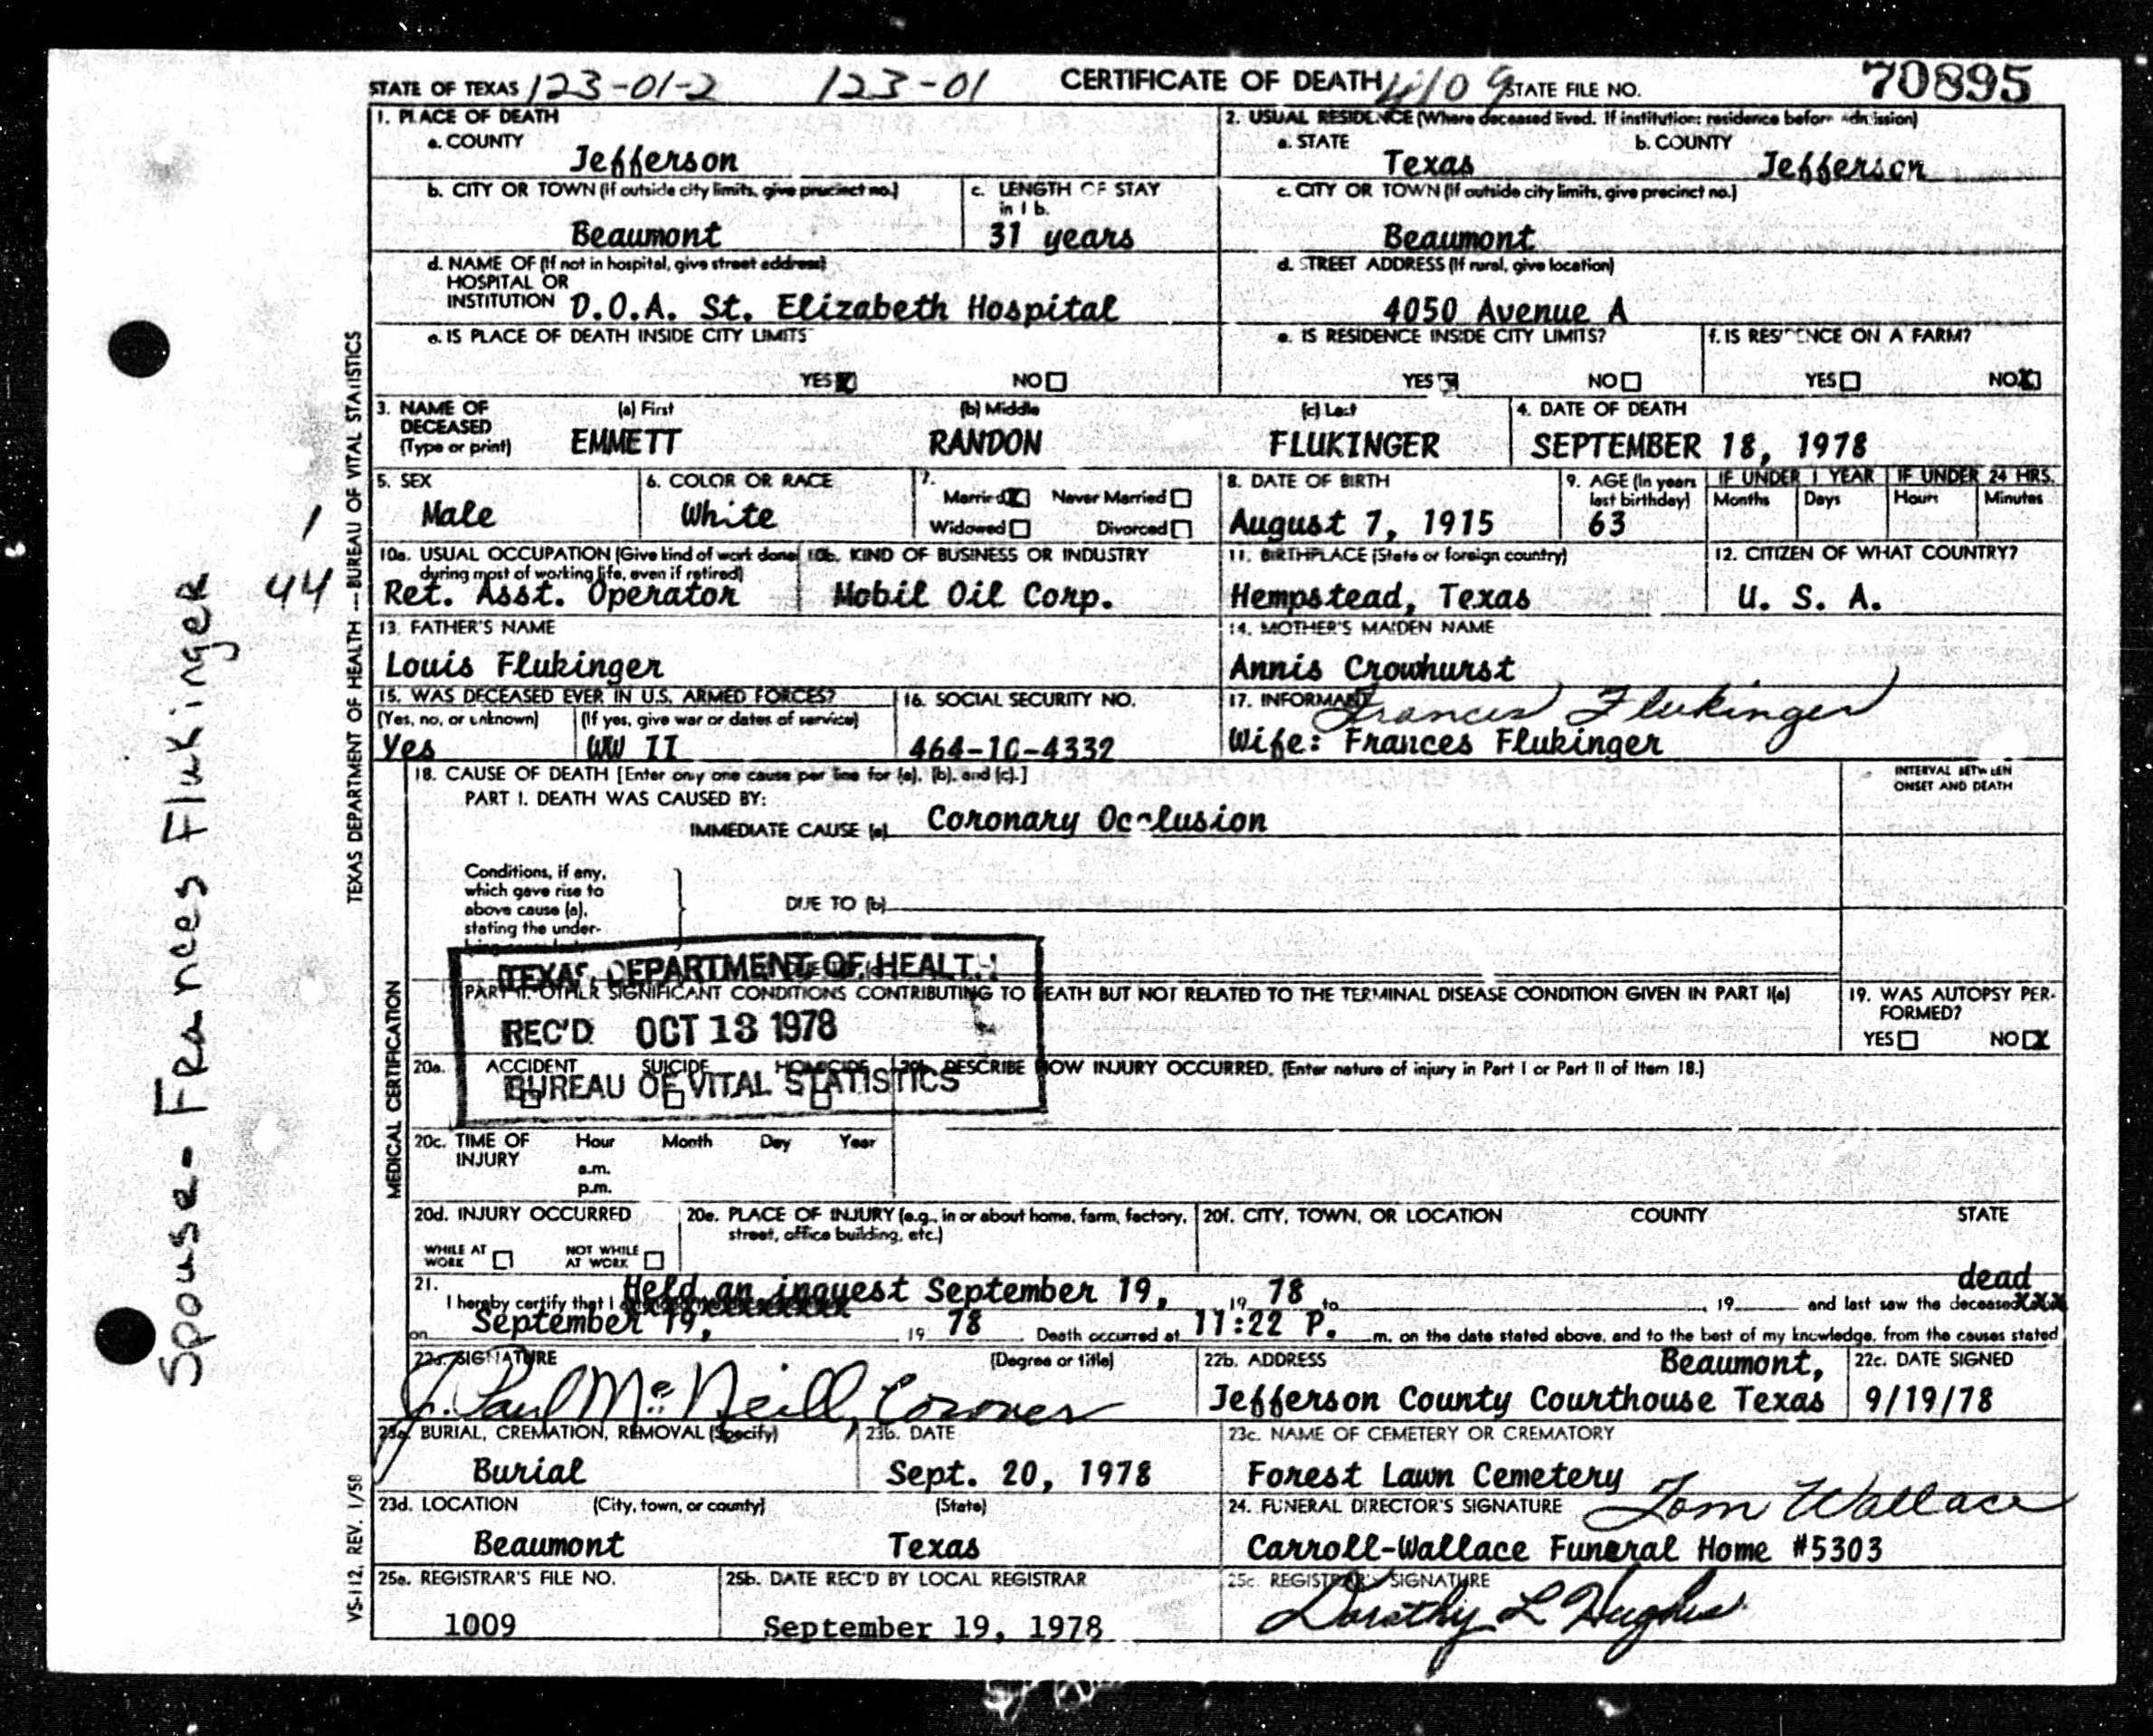 STATE OF TEXAS 123-01-2 123-01 CERTIFICATE OF DEATH 4109 STATE FILE NO. 70895
1. PLACE OF DEATH
a. COUNTY
Jefferson
2. USUAL RESIDENCE (Where deceased lived. If institution: residence before admission)
a. STATE b. COUNTY
Texas Jefferson
b. CITY OR TOWN (If outside city limits, give precinct no.)
Beaumont
c. LENGTH OF STAY
in 1 b.
31 years
c. CITY OR TOWN (If outside city limits, give precinct no.)
Beaumont
d. NAME OF (If not in hospital, give street address)
HOSPITAL OR
INSTITUTION D.O.A. St. Elizabeth Hospital
d. STREET ADDRESS (If rural, give location)
4050 Avenue A
e. IS PLACE OF DEATH INSIDE CITY LIMITS
YES NO
e. IS RESIDENCE INSIDE CITY LIMITS?
YES NO
f. IS RESIDENCE ON A FARM?
YES NO
3. NAME OF
DECEASED
(Type or print)
(a) First (b) Middle (c) Last
EMMETT RANDON FLUKINGER
4. DATE OF DEATH
SEPTEMBER 18, 1978
5. SEX
Male
6. COLOR OR RACE
White
7.
Married Never Married
Widowed Divorced
8. DATE OF BIRTH
August 7, 1915
9. AGE (In years
last birthday)
63
IF UNDER 1 YEAR IF UNDER 24 HRS.
Months Days Hours Minutes
10a. USUAL OCCUPATION (Give kind of work done
during most of working life, even if retired)
Ret. Asst. Operator
10b. KIND OF BUSINESS OR INDUSTRY
Mobil Oil Corp.
11. BIRTHPLACE (State or foreign country)
Hempstead, Texas
12. CITIZEN OF WHAT COUNTRY?
U. S. A.
13. FATHER'S NAME
Louis Flukinger
14. MOTHER'S MAIDEN NAME
Annis Crowhurst
15. WAS DECEASED EVER IN U.S. ARMED FORCES?
(Yes, no, or unknown) (If yes, give war or dates of service)
Yes WW II
16. SOCIAL SECURITY NO.
464-10-4332
17. INFORMANT Frances Flukinger
Wife: Frances Flukinger
18. CAUSE OF DEATH [Enter only one cause per line for (a), (b), and (c).]
PART I. DEATH WAS CAUSED BY:
IMMEDIATE CAUSE (a) Coronary Occlusion
INTERVAL BETWEEN
ONSET AND DEATH
Conditions, if any,
which gave rise to
above cause (a),
stating the under-
DUE TO (b)
TEXAS DEPARTMENT OF HEALTH
REC'D OCT 13 1978
BUREAU OF VITAL STATISTICS
PART II. OTHER SIGNIFICANT CONDITIONS CONTRIBUTING TO DEATH BUT NOT RELATED TO THE TERMINAL DISEASE CONDITION GIVEN IN PART I(a)
19. WAS AUTOPSY PER-
FORMED?
YES NO
20a. ACCIDENT SUICIDE HOMICIDE
20b. DESCRIBE HOW INJURY OCCURRED. (Enter nature of injury in Part I or Part II of Item 18.)
20c. TIME OF
INJURY
Hour Month Day Year
a.m.
p.m.
20d. INJURY OCCURRED
WHILE AT
WORK
NOT WHILE
AT WORK
20e. PLACE OF INJURY (e.g., in or about home, farm, factory,
street, office building, etc.)
20f. CITY, TOWN, OR LOCATION COUNTY STATE
21. Held an inquest September 19, 78 dead
I hereby certify that I 19 to , 19 and last saw the deceased
on September 19, 19 78 Death occurred at 11:22 P. m. on the date stated above, and to the best of my knowledge, from the causes stated
22a. SIGNATURE (Degree or title)
J. Paul McNeill, Coroner
22b. ADDRESS Beaumont,
Jefferson County Courthouse Texas
22c. DATE SIGNED
9/19/78
23a. BURIAL, CREMATION, REMOVAL (Specify)
Burial
23b. DATE
Sept. 20, 1978
23c. NAME OF CEMETERY OR CREMATORY
Forest Lawn Cemetery
23d. LOCATION (City, town, or county) (State)
Beaumont Texas
24. FUNERAL DIRECTOR'S SIGNATURE Tom Wallace
Carroll-Wallace Funeral Home #5303
25a. REGISTRAR'S FILE NO.
1009
25b. DATE REC'D BY LOCAL REGISTRAR
September 19, 1978
25c. REGISTRAR'S SIGNATURE
Dorothy L Hughes
TEXAS DEPARTMENT OF HEALTH — BUREAU OF VITAL STATISTICS
MEDICAL CERTIFICATION
VS-112, REV. 1/58
1
44
Spouse- Frances Flukinger